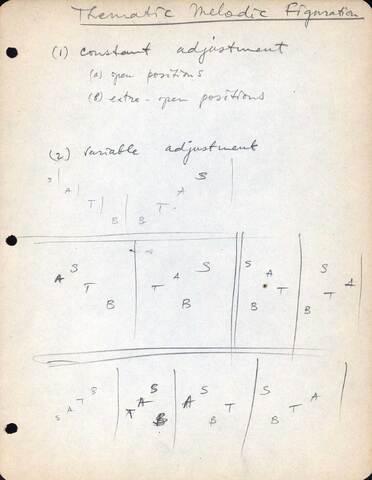 Thematic Melodic Figuration
(1) constant adjustment
(a) open positions
(b) extra-open positions
(2) variable adjustment
S A T B B T A S
A S T B T A S B S A B T S B T A
S A T S T A S B A S B T S B T A